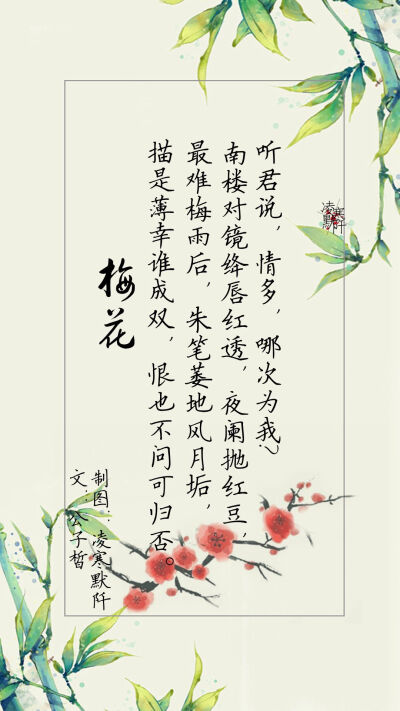 听君说，情多，哪次为我？
南楼对镜绛唇红透，夜阑抛红豆，
最难梅雨后，朱笔萎地风月垢，
描是薄幸谁成双，恨也不问可归否。
梅花
制图：凌寒默阡
文：公子皙
凌寒默阡